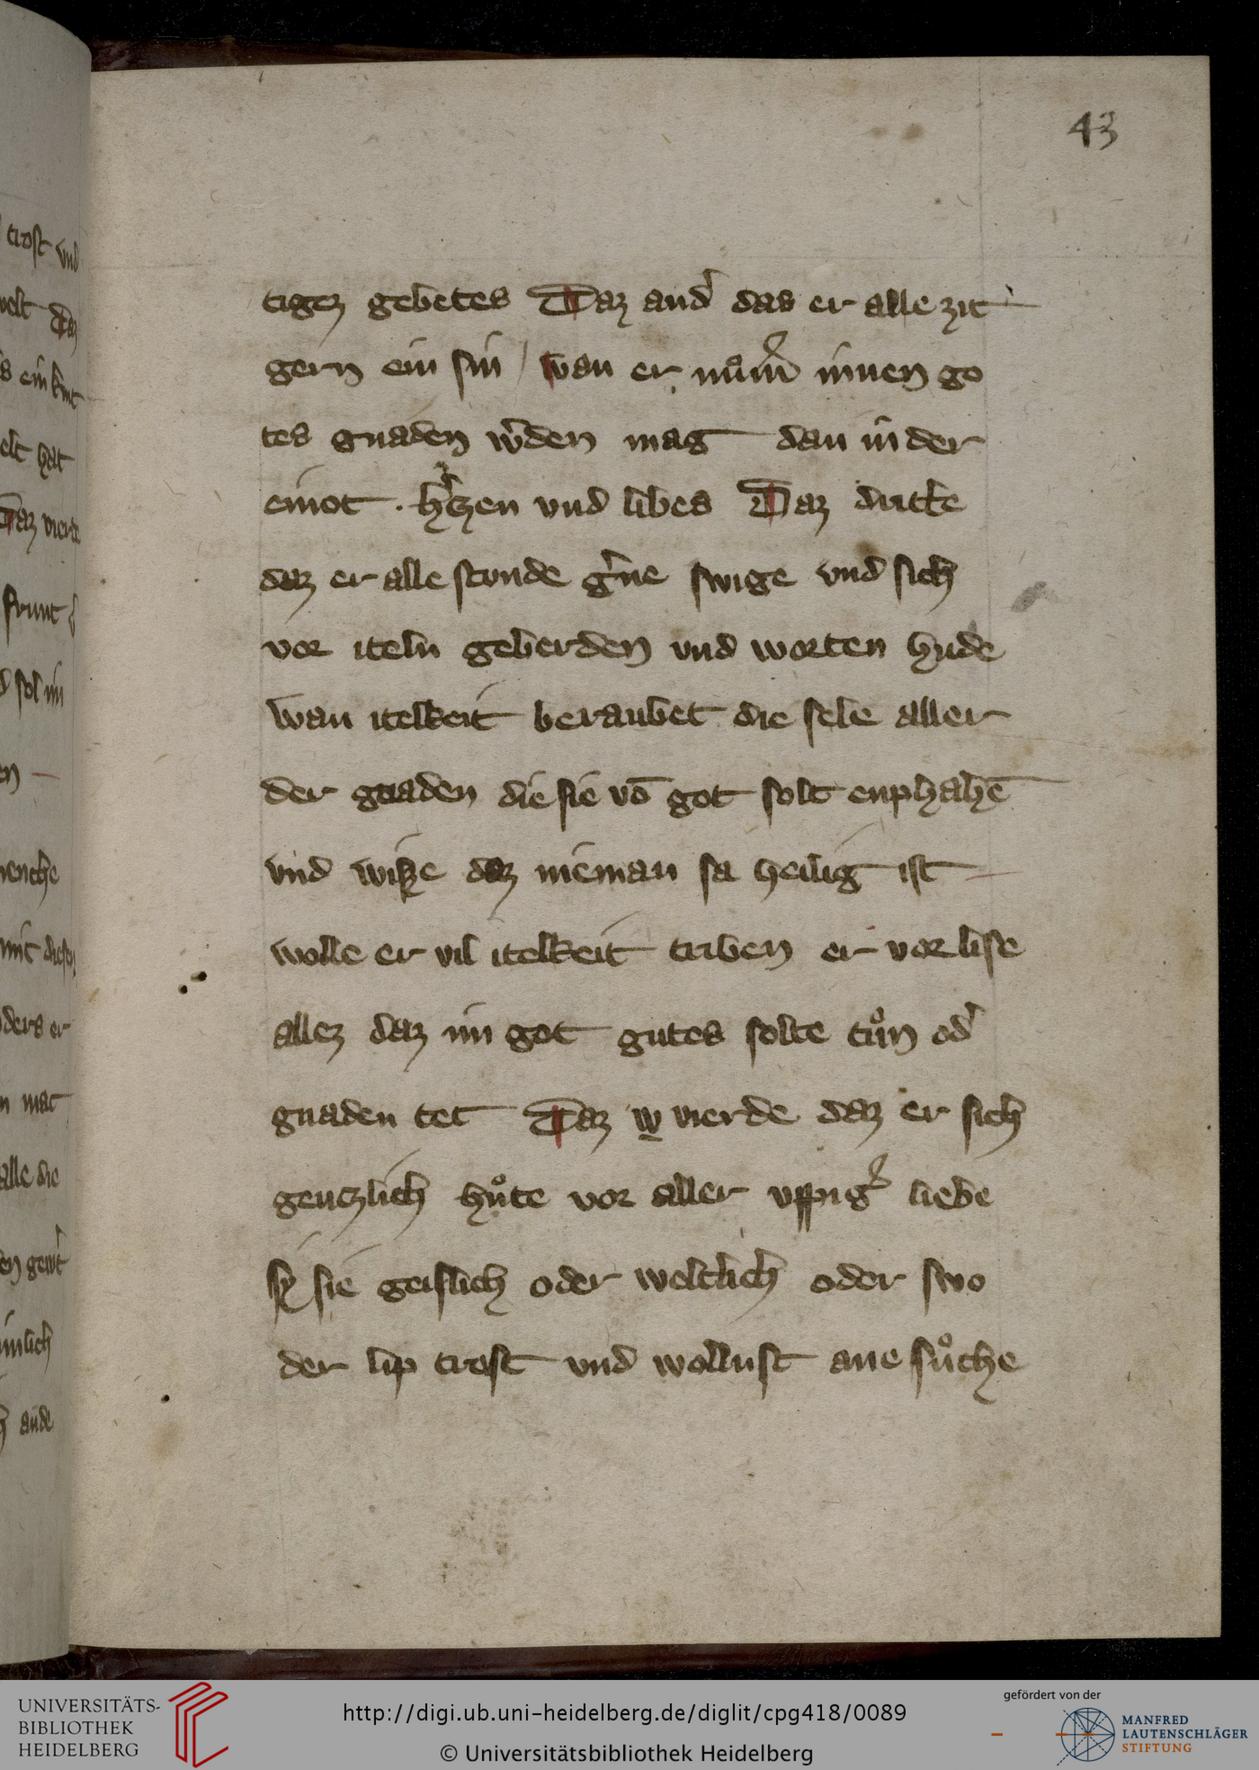 43
tigez gebetes Daz and̛ das er alle zit
gern ein sin / wan er innen go
tes gnaden w̛den mag dan in der
einot · h̛tzen und libes Daz dritte
daz er alle stonde g̛ne swige und sich
vor iteln geberden und worten hude
wan itelkeit beraubet die sele aller
der gnaden die sie vō got solt enphahē
und wisze daz nieman sa heilig ist
wolle er vil itelkeit triben er vorlise
allez daz im got gutes solte tůn od̛
gnaden tet Daz vierde daz er sich
gentzlich hůte vor aller uppig̛ liebe
sy sie geislich oder weltlich oder swo
der lip trost und wollust ane sůche
trost und
UNIVERSITÄTS-
BIBLIOTHEK
HEIDELBERG
http://digi.ub.uni-heidelberg.de/diglit/cpg418/0089
© Universitätsbibliothek Heidelberg
gefördert von der
MANFRED
LAUTENSCHLÄGER
STIFTUNG